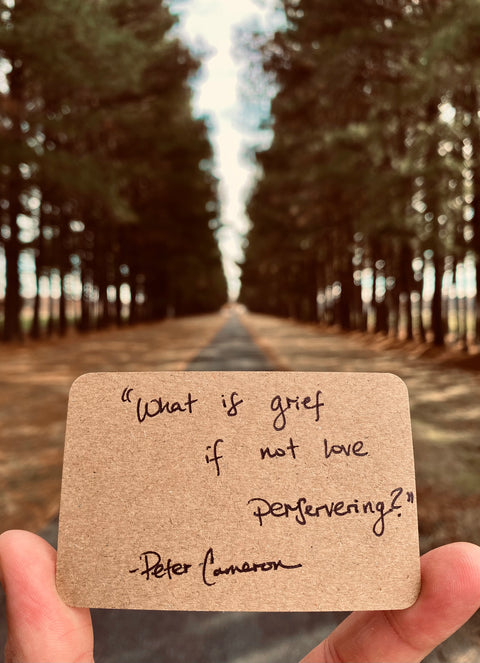 "What is grief
if not love
perservering?"
-Peter Cameron